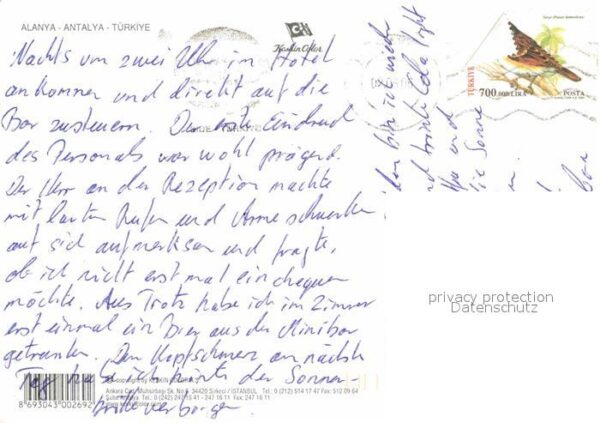 ALANYA - ANTALYA - TÜRKİYE
Keskin Color
Nachts um zwei Uhr im Hotel
ankommen und direkt auf die
Bar zusteuern. Der erste Eindruck
des Personals war wohl prägend.
Der Herr an der Rezeption machte
mit lauten Rufen und Arme schwenken
auf sich aufmerksam und fragte,
ob ich nicht erst mal einchequen
möchte. Aus Trotz habe ich im Zimmer
erst einmal ein Bier aus der Minibar
getrunken. Den Kopfschmerz am nächsten
Tag habe ich hinter der Sonnen
brille verborgen.
bin ich wieder
und trinke
und
die Sonne
TÜRKİYE
700.000 LİRA
POSTA
privacy protection
Datenschutz
8 693043 002692
Ankara Cad. No. 34420 Sirkeci / İSTANBUL Tel: 0 (212) 514 17 47 Fax: 512 09 64
Tel: 0 (242) 247 15 41 - 247 16 11 Fax: 247 16 11